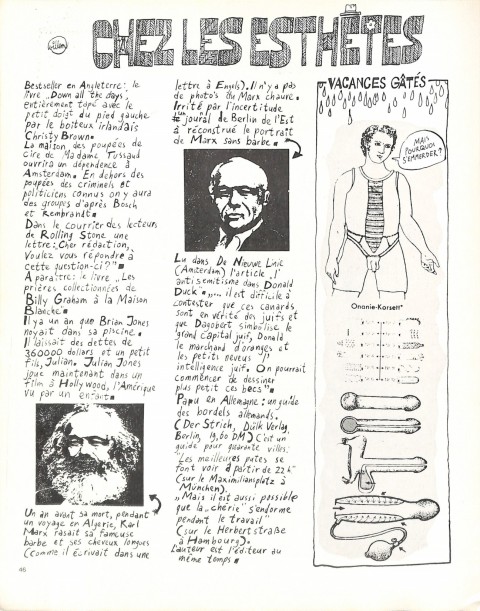 Willem
CHEZ LES ESTHÈTES
Bestseller en Angleterre: le
livre „Down all the days",
entièrement tapé avec le
petit doigt du pied gauche
par le boiteux irlandais
Christy Brown.
La maison des poupées de
cire de Madame Tussaud
ouvrira un dépendence à
Amsterdam. En dehors des
poupées des criminels et
politiciens connus on y aura
des groupes d'après Bosch
et Rembrandt.
Dans le courrier des lecteurs
de Rolling Stone une
lettre: „Cher rédaction,
Voulez vous répondre à
cette question-ci?"
A paraître: le livre „Les
prières collectionnées de
Billy Graham à la Maison
Blanche"
Il y a un an que Brian Jones
noyait dans sa piscine.
Il laissait des dettes de
360000 dollars et un petit
fils, Julian. Julian Jones
joue maintenant dans un
film à Hollywood, l'Amérique
vu par un enfant.
Un an avant sa mort, pendant
un voyage en Algérie, Karl
Marx rasait sa fameuse
barbe et ses cheveux longues
(comme il écrivait dans une
46
lettre à Engels). Il n'y a pas
de photo's du Marx chauve.
Irrité par l'incertitude
un journal de Berlin de l'Est
à réconstrué le portrait
de Marx sans barbe.
Lu dans De Nieuwe Linie
(Amsterdam) l'article „l'
antisemitisme dans Donald
Duck". „... il est difficile à
contester que ces canards
sont en vérité des juifs et
que Dagobert simbolise le
grand Capital juif, Donald
le marchand d'oranges et
les petits neveux l'
intelligence juif. On pourrait
commencer de dessiner
plus petit ces becs"
Paru en Allemagne: un guide
des bordels allemands.
(Der Strich, Dülk Verlag,
Berlin, 19,60 DM) C'est un
guide pour quarante villes.
"Les meilleures putes se
font voir à partir de 22 h"
(sur le Maximiliansplatz à
München).
„Mais il est aussi possible
que la „chérie" s'endorme
pendant le travail"
(sur le Herbertstraße
à Hambourg).
L'auteur est l'éditeur au
même temps
VACANCES GÂTÉS
MAIS
POURQUOI
S'EMMERDER?
Ononie-Korsett"